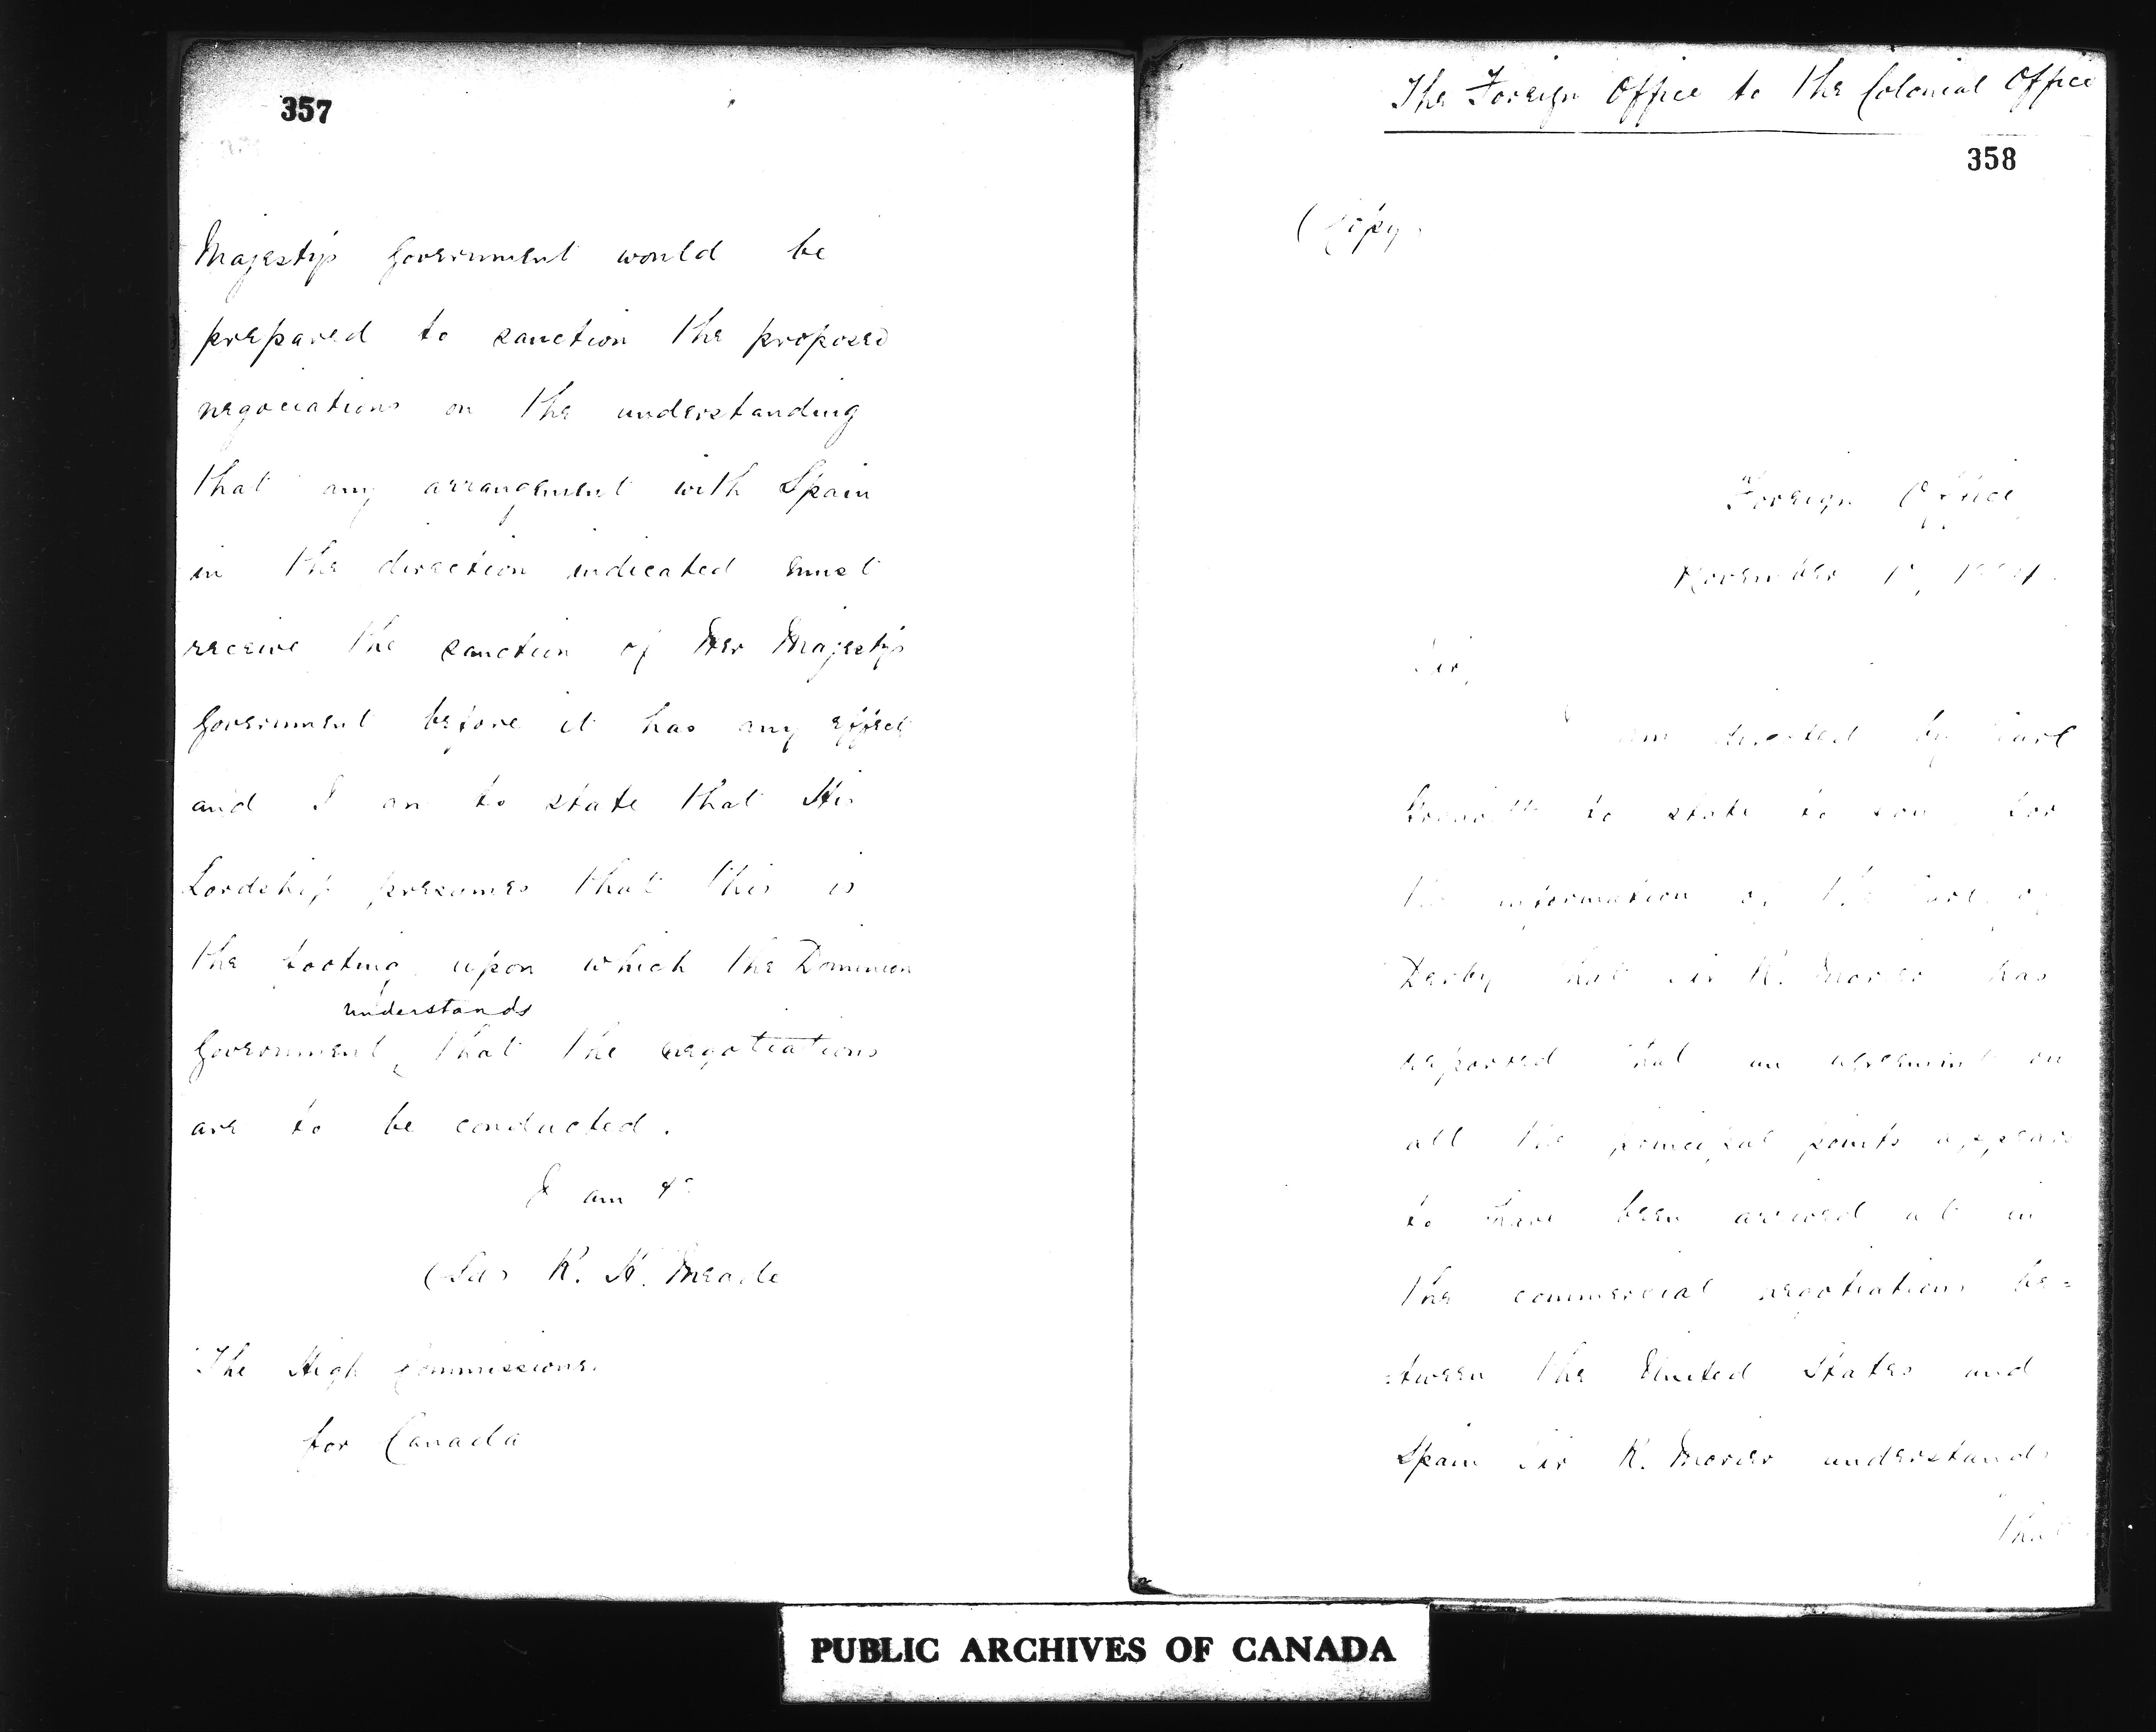 357
Majesty's Government would be
prepared to sanction the proposed
negociations on the understanding
that any arrangement with Spain
in the direction indicated must
receive the sanction of Her Majesty's
Government before it has any effect
and I am to state that His
Lordship presumes that this is
the footing upon which the Dominion
understands
Government ‸ that the negotiations
are to be conducted.
I am &c
(Sd) R. H. Meade
The High Commissioner
for Canada
The Foreign Office to the Colonial Office
358
(Copy)
Foreign Office
November 1,
Sir,
I am directed by Earl
Granville to state to you for
the information of the Earl of
Derby that Sir R. Morier has
reported that an agreement on
all the principal points appears
to have been arrived at in
the commercial negotiations be=
=tween the United States and
Spain Sir R. Morier understands
that
PUBLIC ARCHIVES OF CANADA